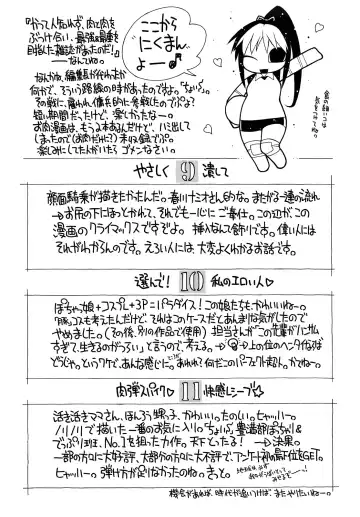 『かつて人知れず、肉と肉を
ぶつけ合い、最強最重を
目指した雑誌があったのだ!』
――なんてね。
ここから
にくまん
よー♪
なんかね、編集長がそれまた
何かで、そういう路線の時があったのですよ。
その戦に、雇われ、傭兵的に参戦したのでぷよ?
短い期間だったけど、楽しかったなー。
お肉漫画は、もう2本あるんだけど、ハミ出して
しまったので(お肉だけに?)未収録でぷ。
楽しみにしてた人がいたらゴメンなさい。
やさしく 9 潰して
顔面騎乗が描きたかったんだ。春川ナミオさん的な。またがる一連の流れ
→お尻の下にほっとかれて、それでも一心にご奉仕。この辺が、この
漫画のクライマックスですぞよ。挿入なんて飾りです。偉い人には
それがわからんのです。えろい人には、大変よくわかるお話です。
選んで! 10 私のエロい人♡
ぽちゃ娘+コスプレ+3P=パラダイス!この娘たちも、かわいいねー。
豚コスも考えたんだけど、それはこのケースだとあんまりな気がしたので
やめました。(その後、別の作品で使用)担当さんが「この先輩がハンサム
すぎて、生きるのがつらい」と言うので、考える。
どうじゃ。というワケで、あんな感じに。あれれ?何だこのパーフェクト超人。かてねー。
肉弾スパイク♡ 11 快感レシーブ☆
活き活きママさん。ほんろう甥っ子。かわいい。たのしい。ヒャッハー。
ノリノリで描いた一番のお気に入りの「ちょいぷに、豊満部ぽちゃり&
でっぷり班、No.1を狙った力作。天下とたる! →決果。
一部の方々に大好評、大部分の方々に大不評で、アンケート初の最下位をGET。
ヒャッハー。弾け方が足りなかったのね。きっと。
機会があれば、時代が追いつけば、またやりたいねー。